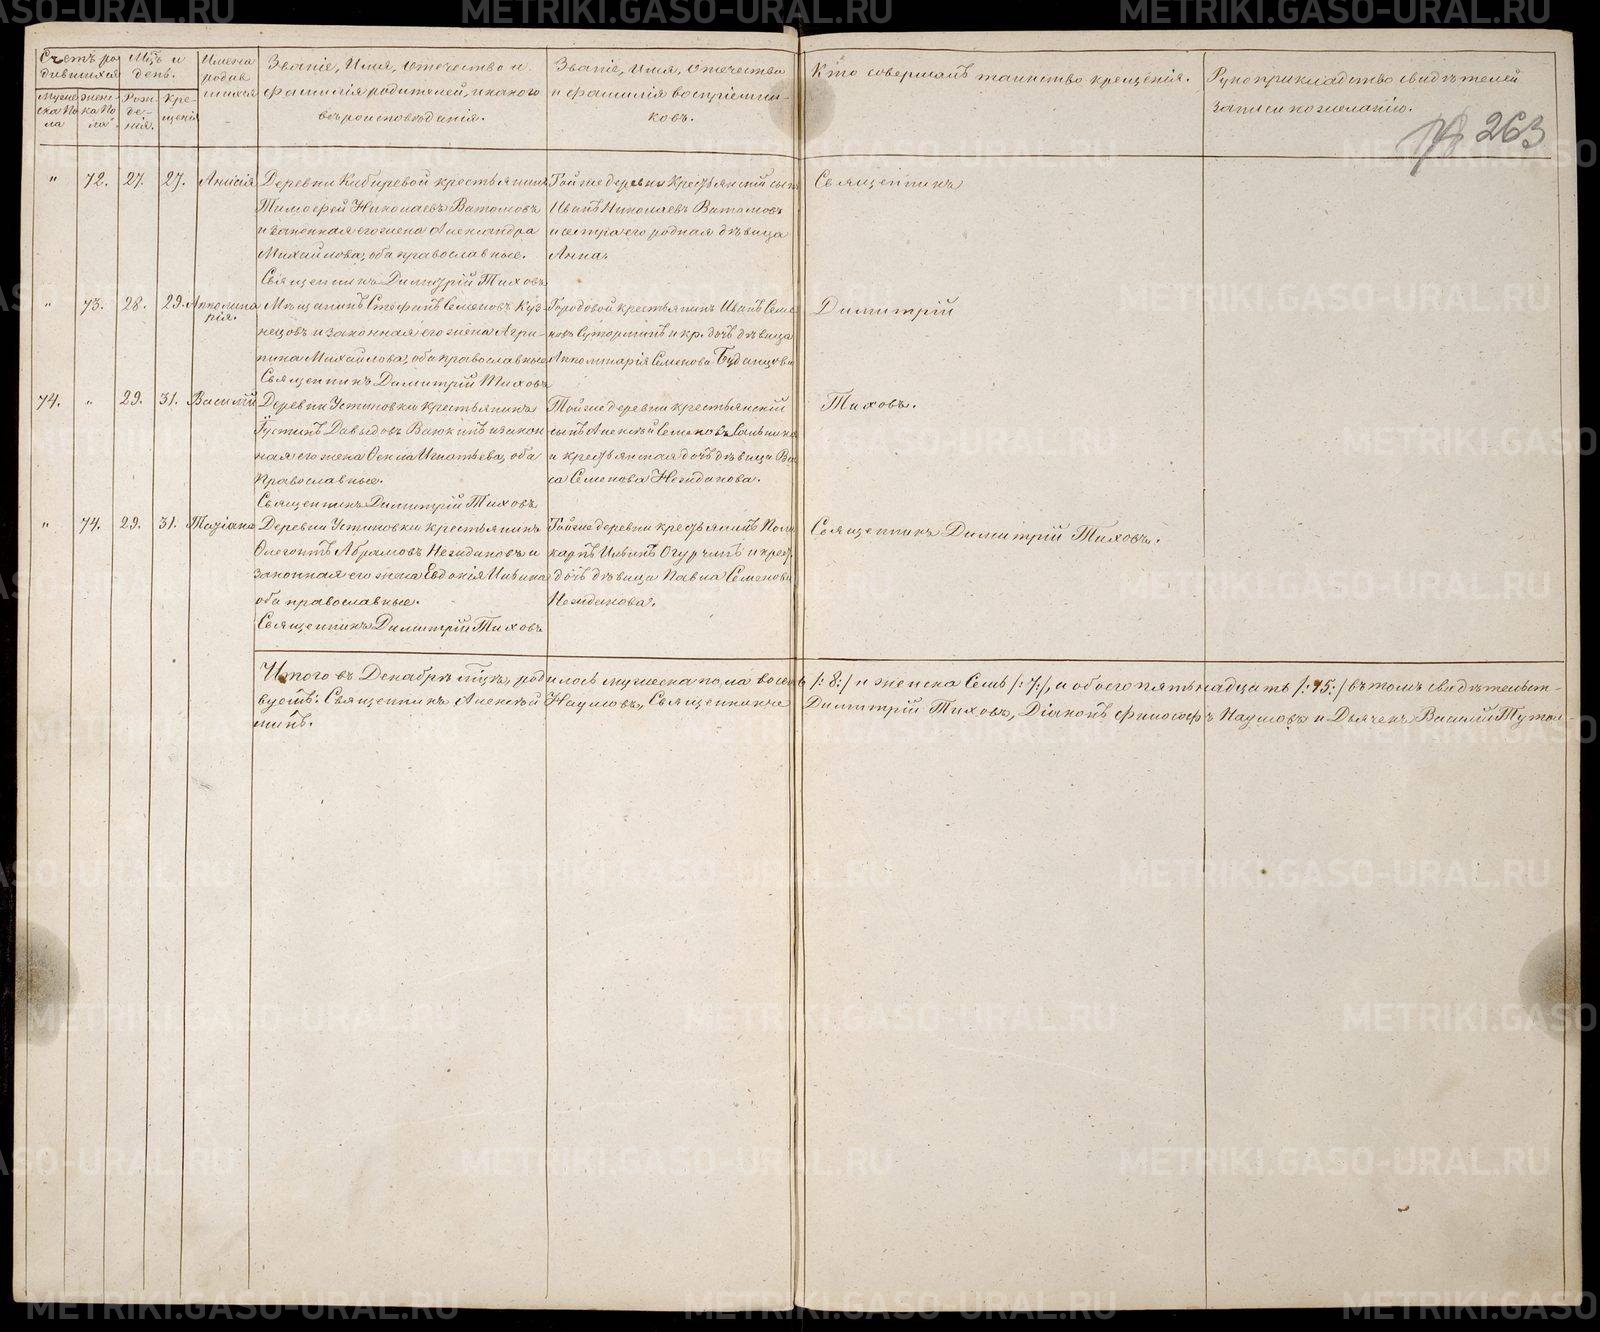 Счетъ ро
дившихся
Мужес
ска по
ла
жене
ка по
ла.
Мѣсяцъ и
день.
Рож
де
нія.
Кре
щенія
Имена
родив
шихся
Званіе, Имя, отечество и
фамилія родителей, и какого
вѣроисповѣданія.
Званіе, имя, отечество
и фамилія воспріемни-
ковъ.
Кто совершалъ таинство крещенія.
Рукоприкладство свидѣтелей
записи по желанію.
263
" 72. 27. 27. Анисія
Деревни Кибиревой крестьянинъ
Тимофей Николаевъ Ватомовъ
и законная его жена Александра
Михайлова, оба православные.
Священникъ Димитрій Тиховъ
Той же деревни крестьянскій сынъ
Иванъ Николаевъ Ватомовъ
и сестра его родная дѣвица
Анна.
Священникъ
" 73. 28. 29. Апполина
рія.
Мѣщанинъ Стефанъ Семеновъ Куз-
нецовъ и законная его жена Агри-
пина Михайлова, оба православные
Священникъ Димитрій Тиховъ
Городовой крестьянинъ Иванъ Семе
новъ Суторминъ и кр. дочь дѣвица
Апполинарія Семенова Буданцова
Димитрій
74. " 29. 31. Василій
Деревни Устиновки крестьянинъ
Густинъ Давыдовъ Ваюкинъ и закон
ная его жена Фекла Игнатьева, оба
православные.
Священникъ Димитрій Тиховъ
Той же деревни крестьянскій
сынъ Алексѣй Семеновъ
и крестьянская дочь дѣвица Ва
са Семенова Нежданова.
Тиховъ.
" 74. 29. 31. Таціана
Деревни Устиновки крестьянинъ
Флегонтъ Абрамовъ Неждановъ и
законная его жена Евдокія Ильина
оба православные.
Священникъ Димитрій Тиховъ
Той же деревни крестьянинъ Поли
карпъ Ильинъ Огурчинъ и крест.
дочь дѣвица Павла Семенова
Нежданова.
Священникъ Димитрій Тиховъ.
Итого въ Декабрѣ мцѣ, родилось мужеска пола восемь /:8:/ и женска Семь /:7:/, а обоего пятьнадцать /:15:/ въ томъ свидѣтельст-
вуемъ: Священникъ Алексѣй Наумовъ, Священникъ Димитрій Тиховъ, Діаконъ Философъ Наумовъ и Дьячекъ Василій Тутол-
минъ.
METRIKI.GASO-URAL.RU